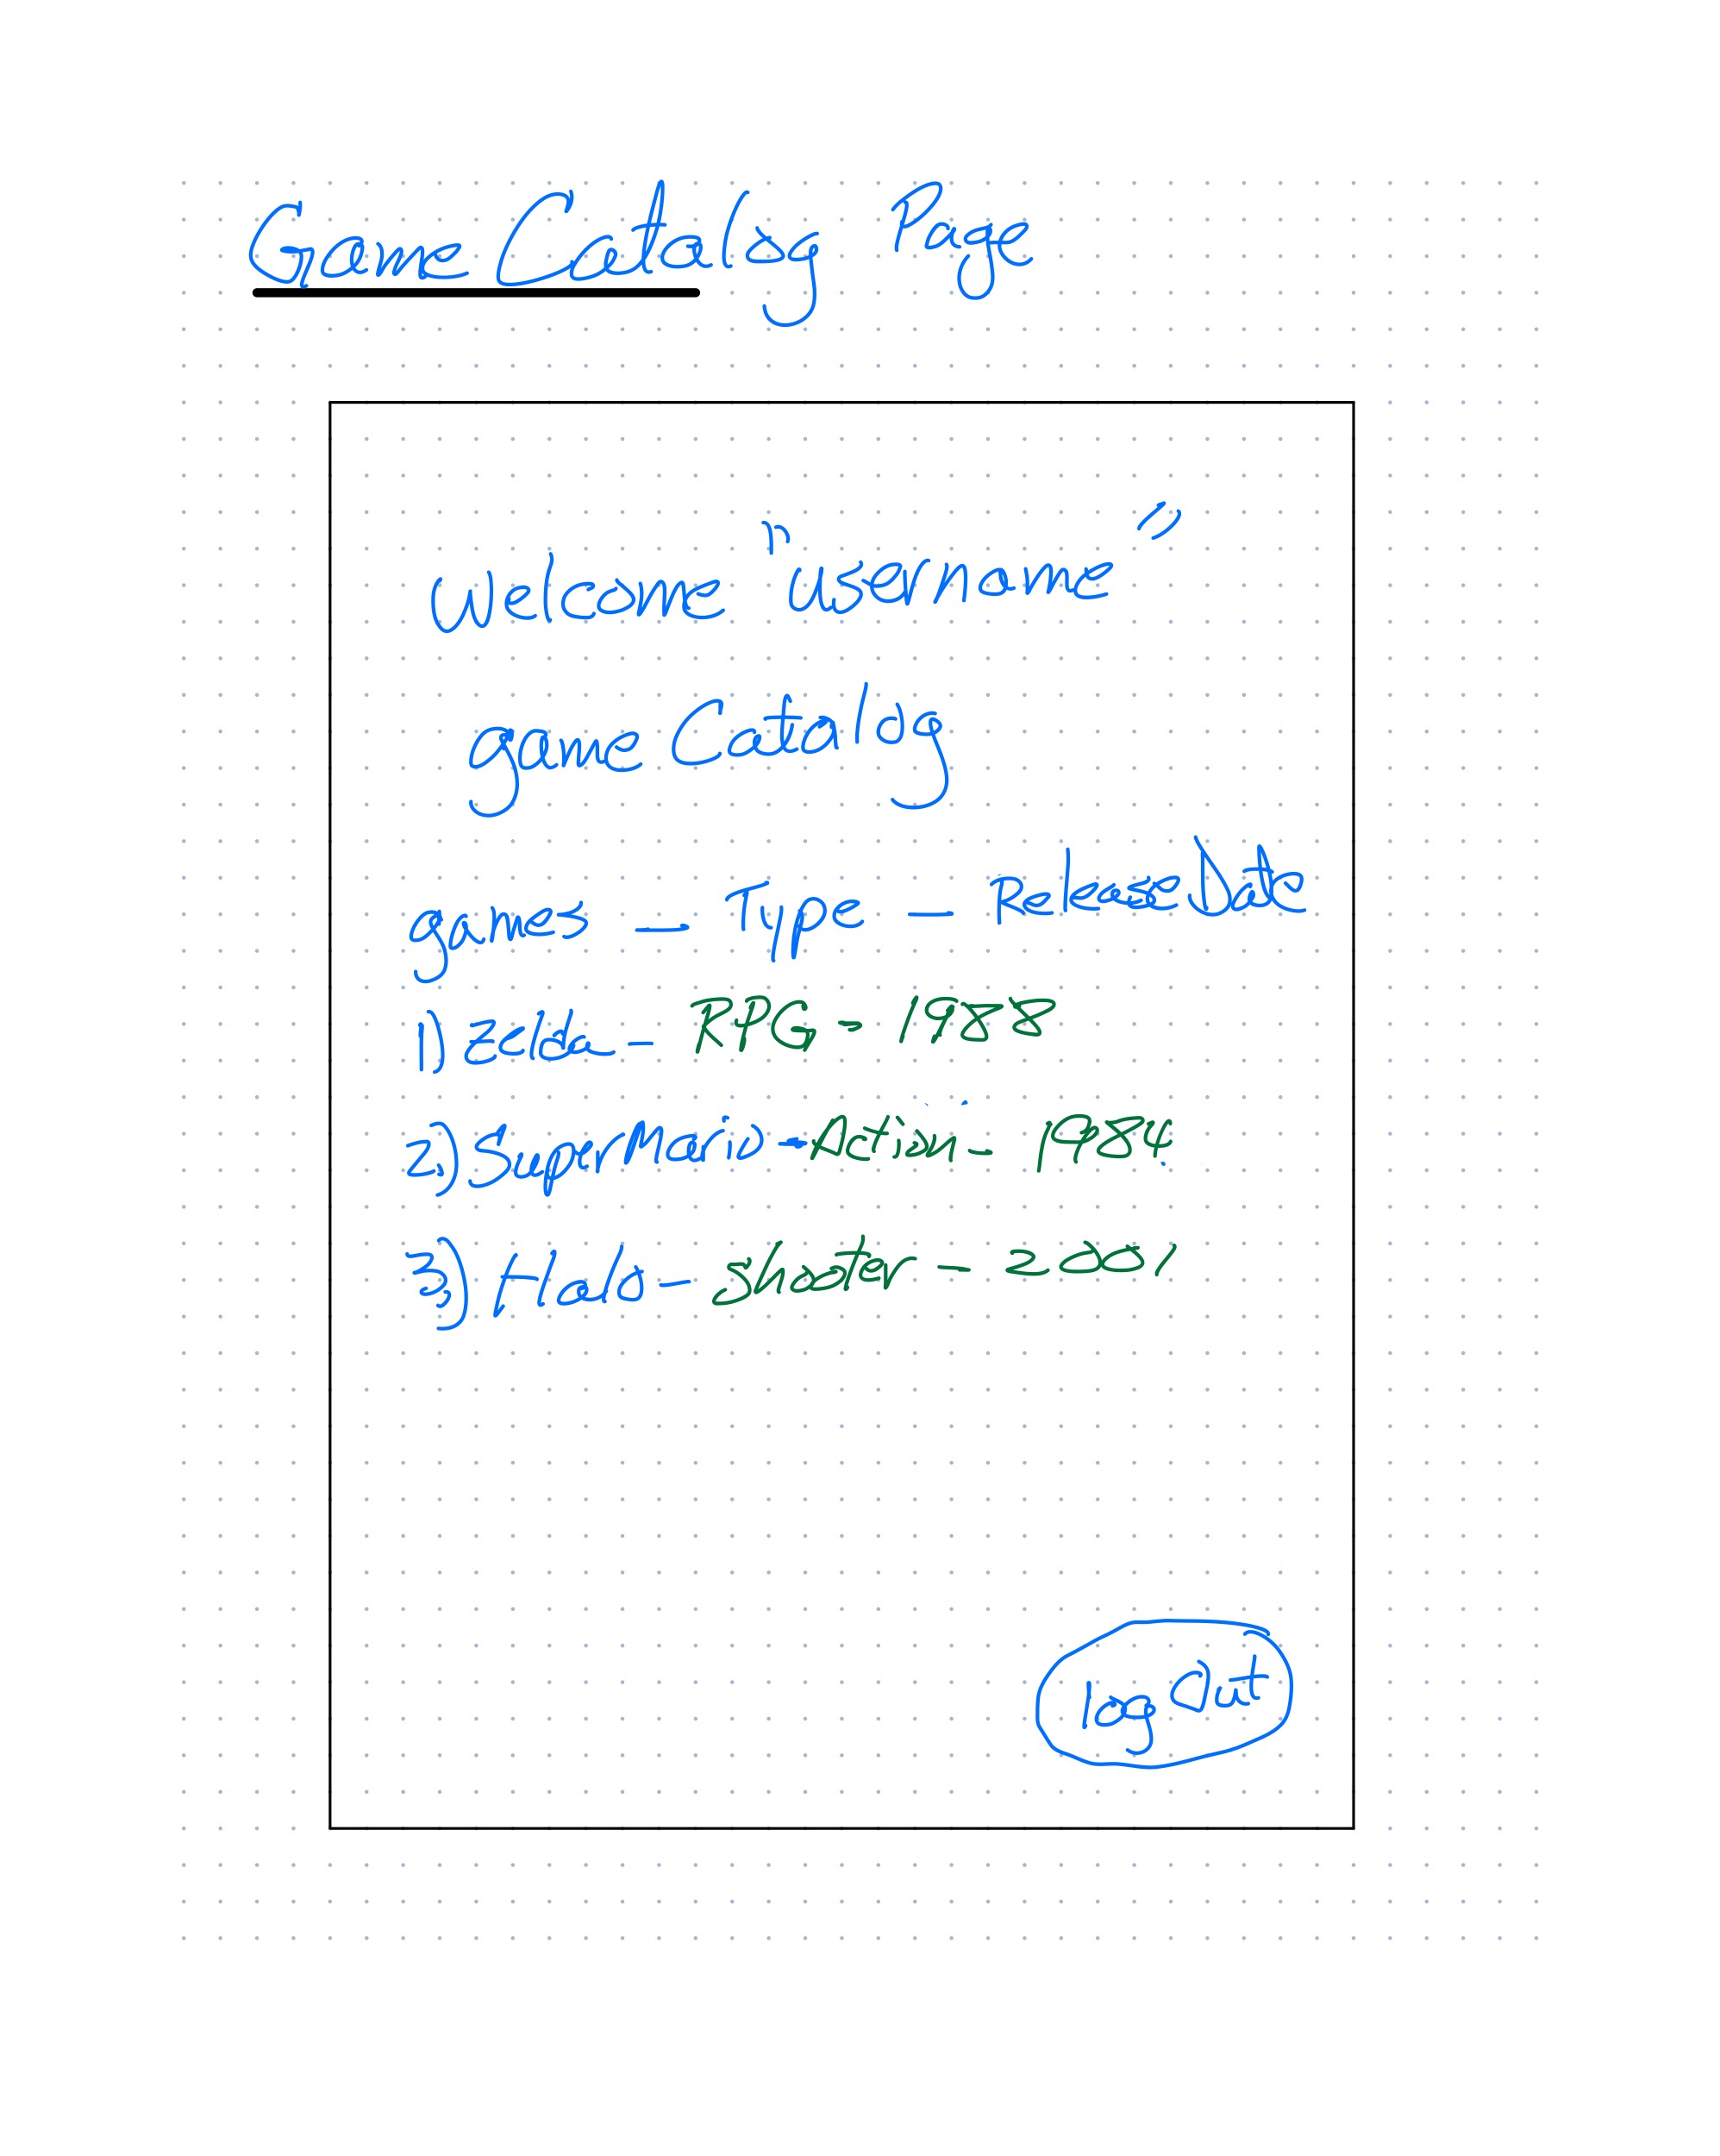 Game Catalog Page
Welcome "username"
game Catalog
games - Type - Release Date
1) Zelda - RPG - 1988
2.) Super Mario - Action - 1984
3.) Halo - Shooter - 2001
log Out